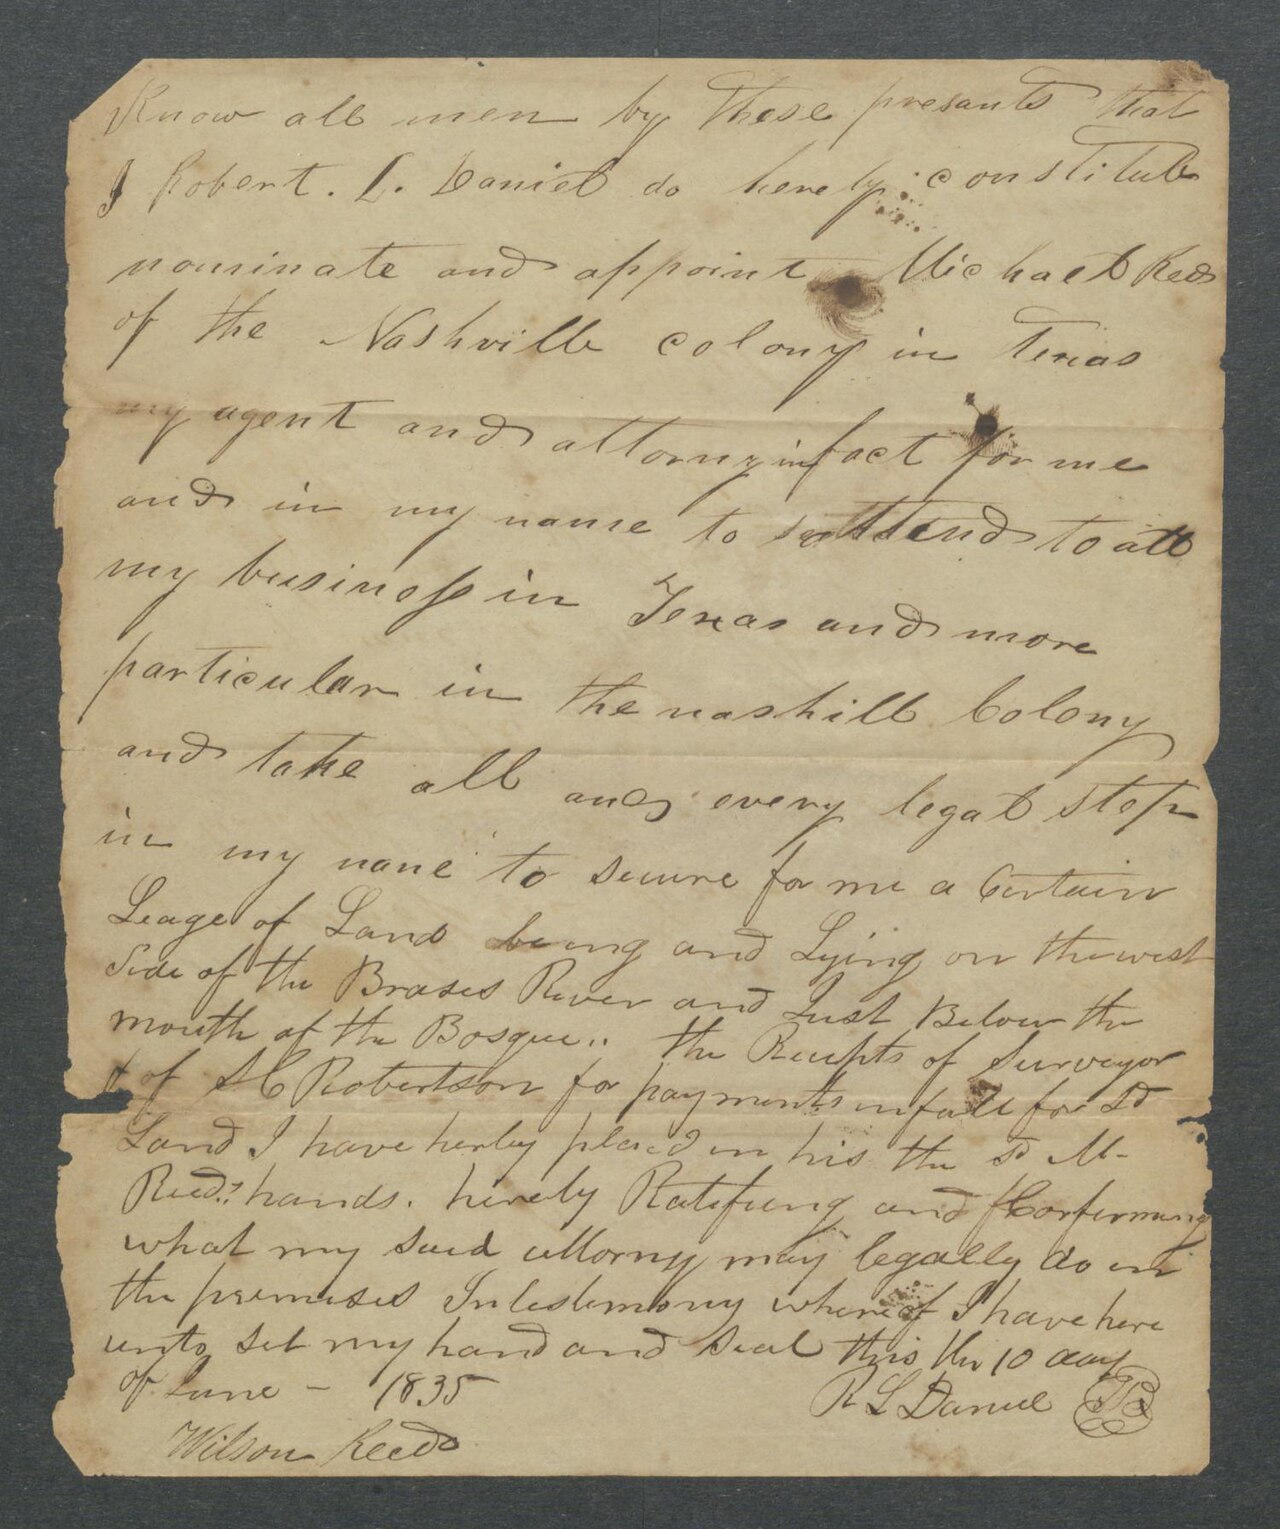 Know all men by these presants that
I Robert. L. Daniel do hereby constitute
nominate and appoint Michael Reed
of the Nashville colony in Texas
my agent and attorny in fact for me
and in my name to attend to all
my business in Texas and more
particular in the nashill Colony
and take all and every legal step
in my name to secure for me a Certain
Leage of Land being and Lying on the west
Side of the Brases River and Just Below the
mouth of the Bosque.. the Recepts of Surveyor
& of S C Robertson for payments in full for Sd
Land I have herby placed in his the Sd M-
Reed's hands. hereby Ratifieng and Confirming
what my said attorny may legally do in
the premises In testimony whereof I have here
unto set my hand and seal this the 10 day
of June - 1835 R L Daniel
Wilson Reed